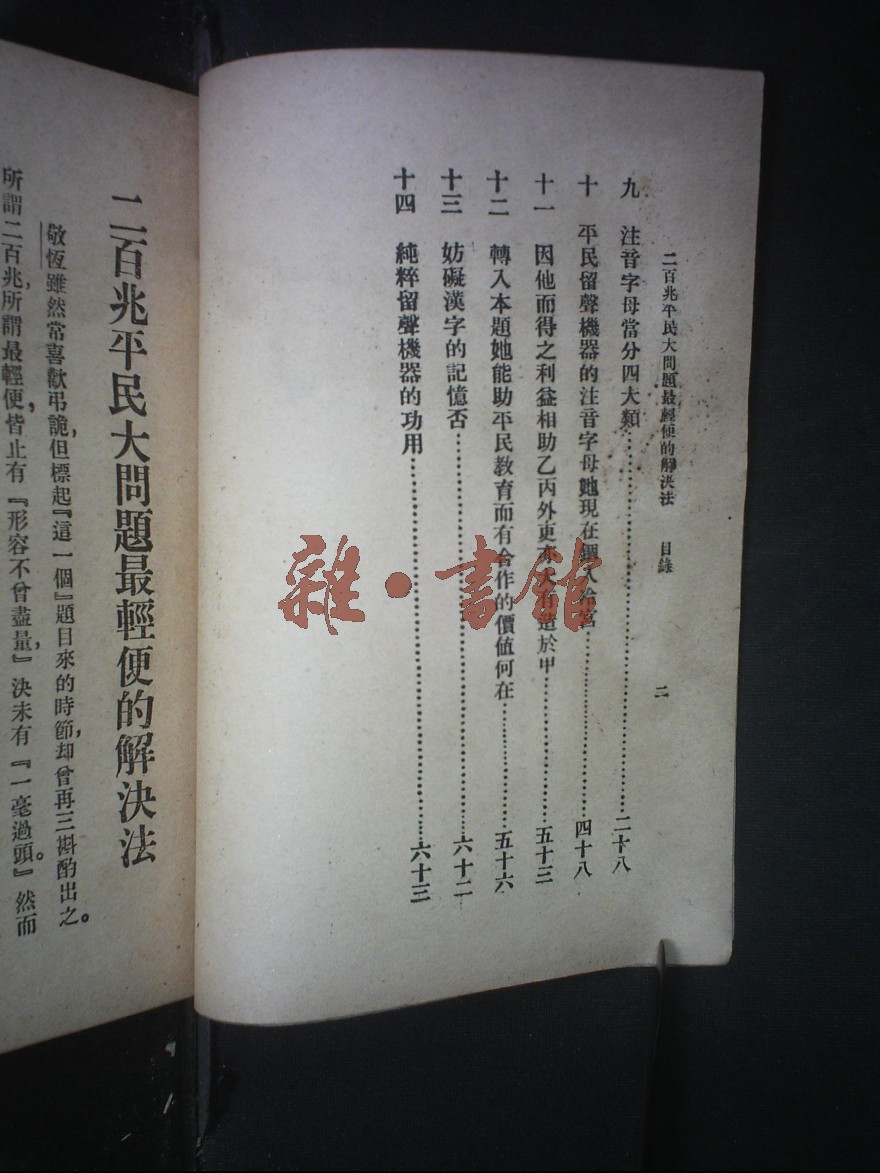 二百兆平民大問題最輕便的解決法 目錄 二
九 注音字母當分四大類 二十八
十 平民留聲機器的注音字母她現在個人 四十八
十一 因他而得之利益相助乙丙外更 於甲 五十三
十二 轉入本題她能助平民教育而有合作的價值何在 五十六
十三 妨礙漢字的記憶否 六十二
十四 純粹留聲機器的功用 六十三
二百兆平民大問題最輕便的解決法
敬恆雖然常喜歡弔詭，但標起『這一個』題目來的時節，却曾再三斟酌出之。
所謂二百兆，所謂最輕便，皆止有『形容不曾盡量』，決未有『一毫過頭』。然而
雜·書館